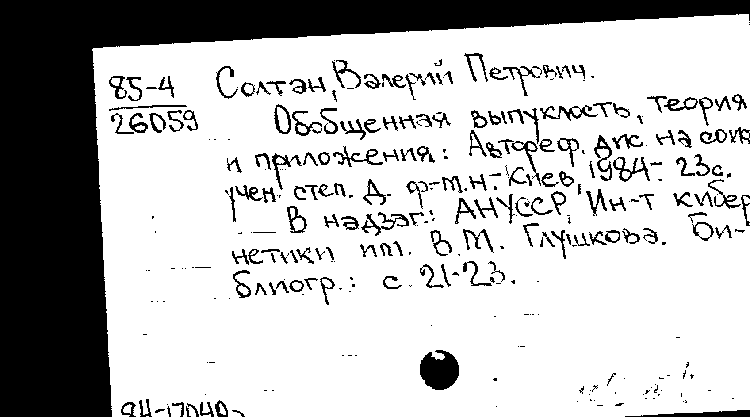 85-4 Солтан, Валерий Петрович.
26059 Обобщенная выпуклость, теория
и приложения: Автореф. дис. на соиск
учен. степ. д. ф-м.н.- Киев, 1984.- 23с.
В надзаг.: АНУССР, Ин-т кибер
нетики им. В.М. Глушкова. Би-
блиогр.: с. 21-23.
84-17040